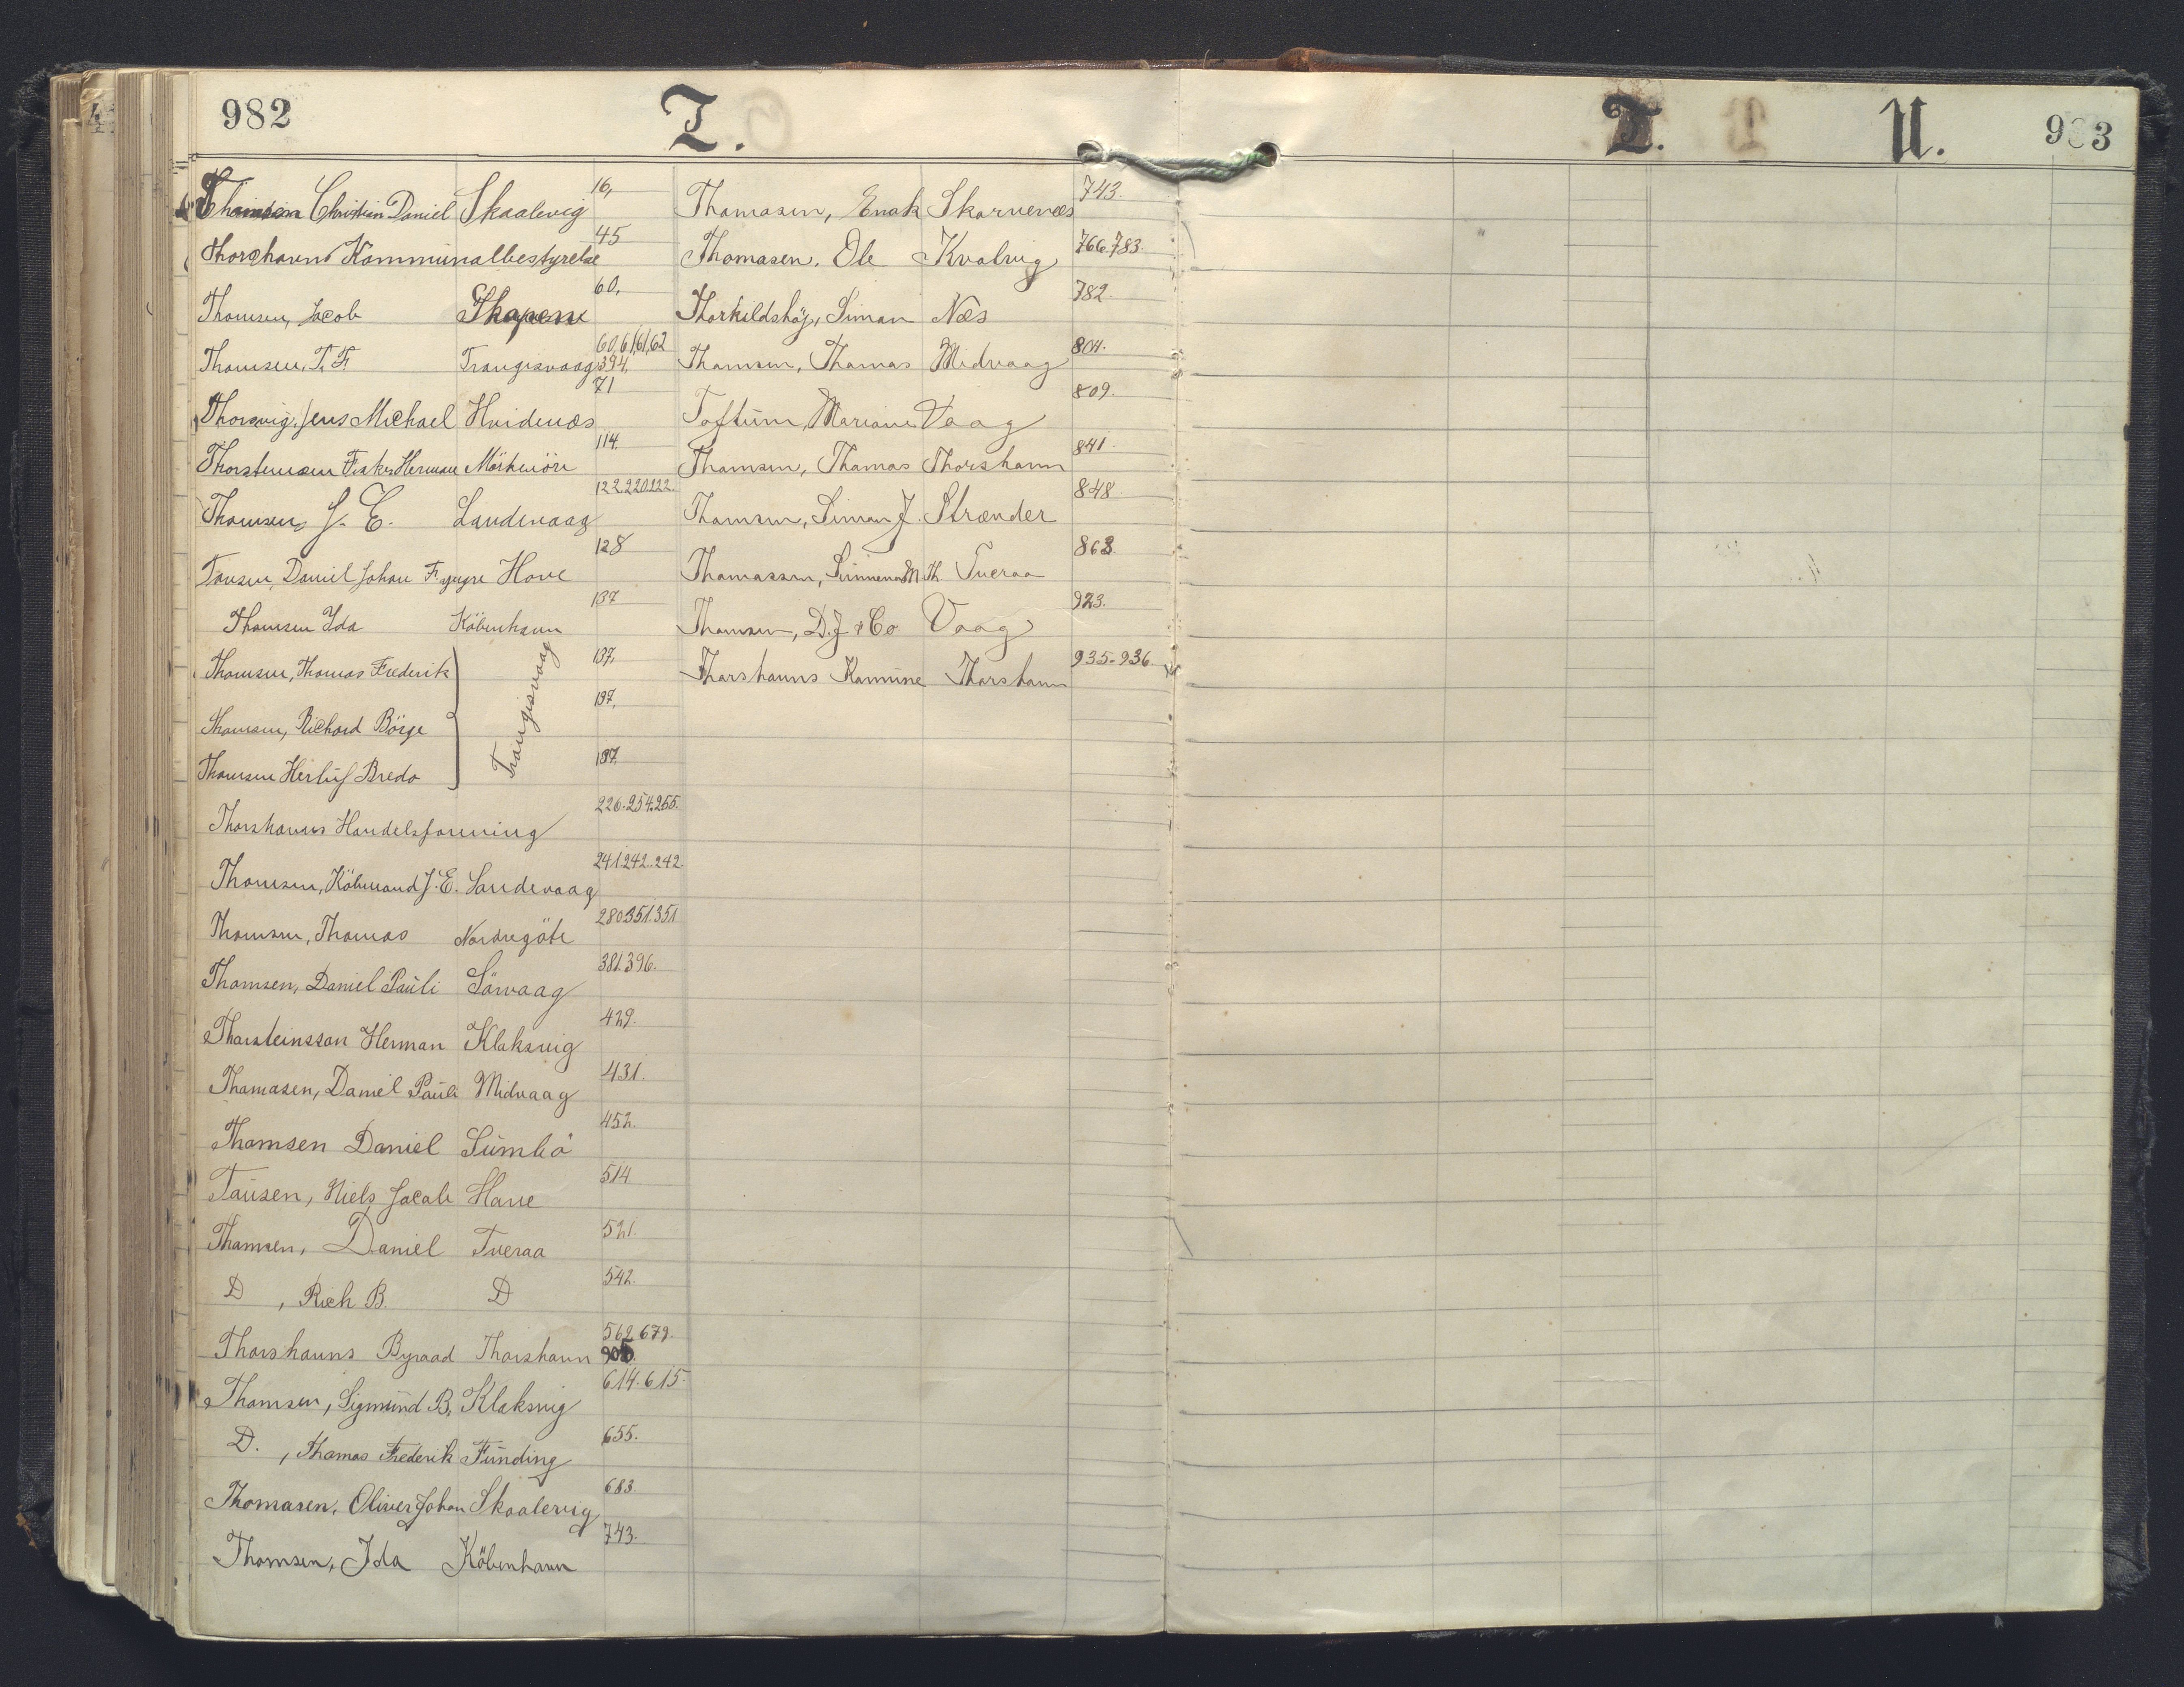 982
T.
Thomsen Christian Daniel Skaalevig 16,
Thorshavns Kommunalbestyrelse 45
Thomsen, Jacob Skapen 60.
Thomsen, T. F. Trangisvaag 60,61,61,62
394,
Thorsvig, Jens Michael Hvidenæs 71
Thorsteinsson Fisker Herman Mörkeröre 114.
Thomsen, J. E. Sandevaag 122.220.222.
Tausen, Daniel Johan F. Hove 128
Thomsen Ida Köbenhavn 137
Thomsen, Thomas Frederik 137,
Trangisvaag
Thomsen, Richard Börge 137,
Thomsen Herluf Bredo 137.
Thorshavns Handelsforening 226.254.255.
Thomsen, Köbmand J. E. Sandevaag 241.242.242.
Thomsen, Thomas Nordregöte 280.351.351
Thomsen, Daniel Pauli Sörvaag 381.396.
Thorsteinsson Herman Klaksvig 429.
Thomasen, Daniel Pauli Midvaag 431.
Thomsen Daniel Sumbö 452.
Tausen, Niels Jacob Hove 514
Thomsen, Daniel Tveraa 521.
D , Rich B. D 542.
Thorshavns Byraad Thorshavn 562.679.
905.
Thomsen, Sigmund B. Klaksvig 614.615.
D. , Thomas Frederik Funding 655.
Thomasen, Oliver Johan Skaalevig 683
Thomsen, Ida Köbenhavn 743.
Thomasen, Enok Skarvenæs 743.
Thomasen, Ole Kvalvig 766.783.
Thorkildshöj, Simon Næs 782.
Thomsen, Thomas Midvaag 804.
Toftum, Mariane Vaag 809.
Thomsen, Thomas Thorshavn 841.
Thomsen, Simon J. Strænder 848.
Thomassen, M. Th. Tveraa 863.
Thomsen, D. J. & Co Vaag 923.
Thorshavns Komune Thorshavn 935-936.
T.
U.
983